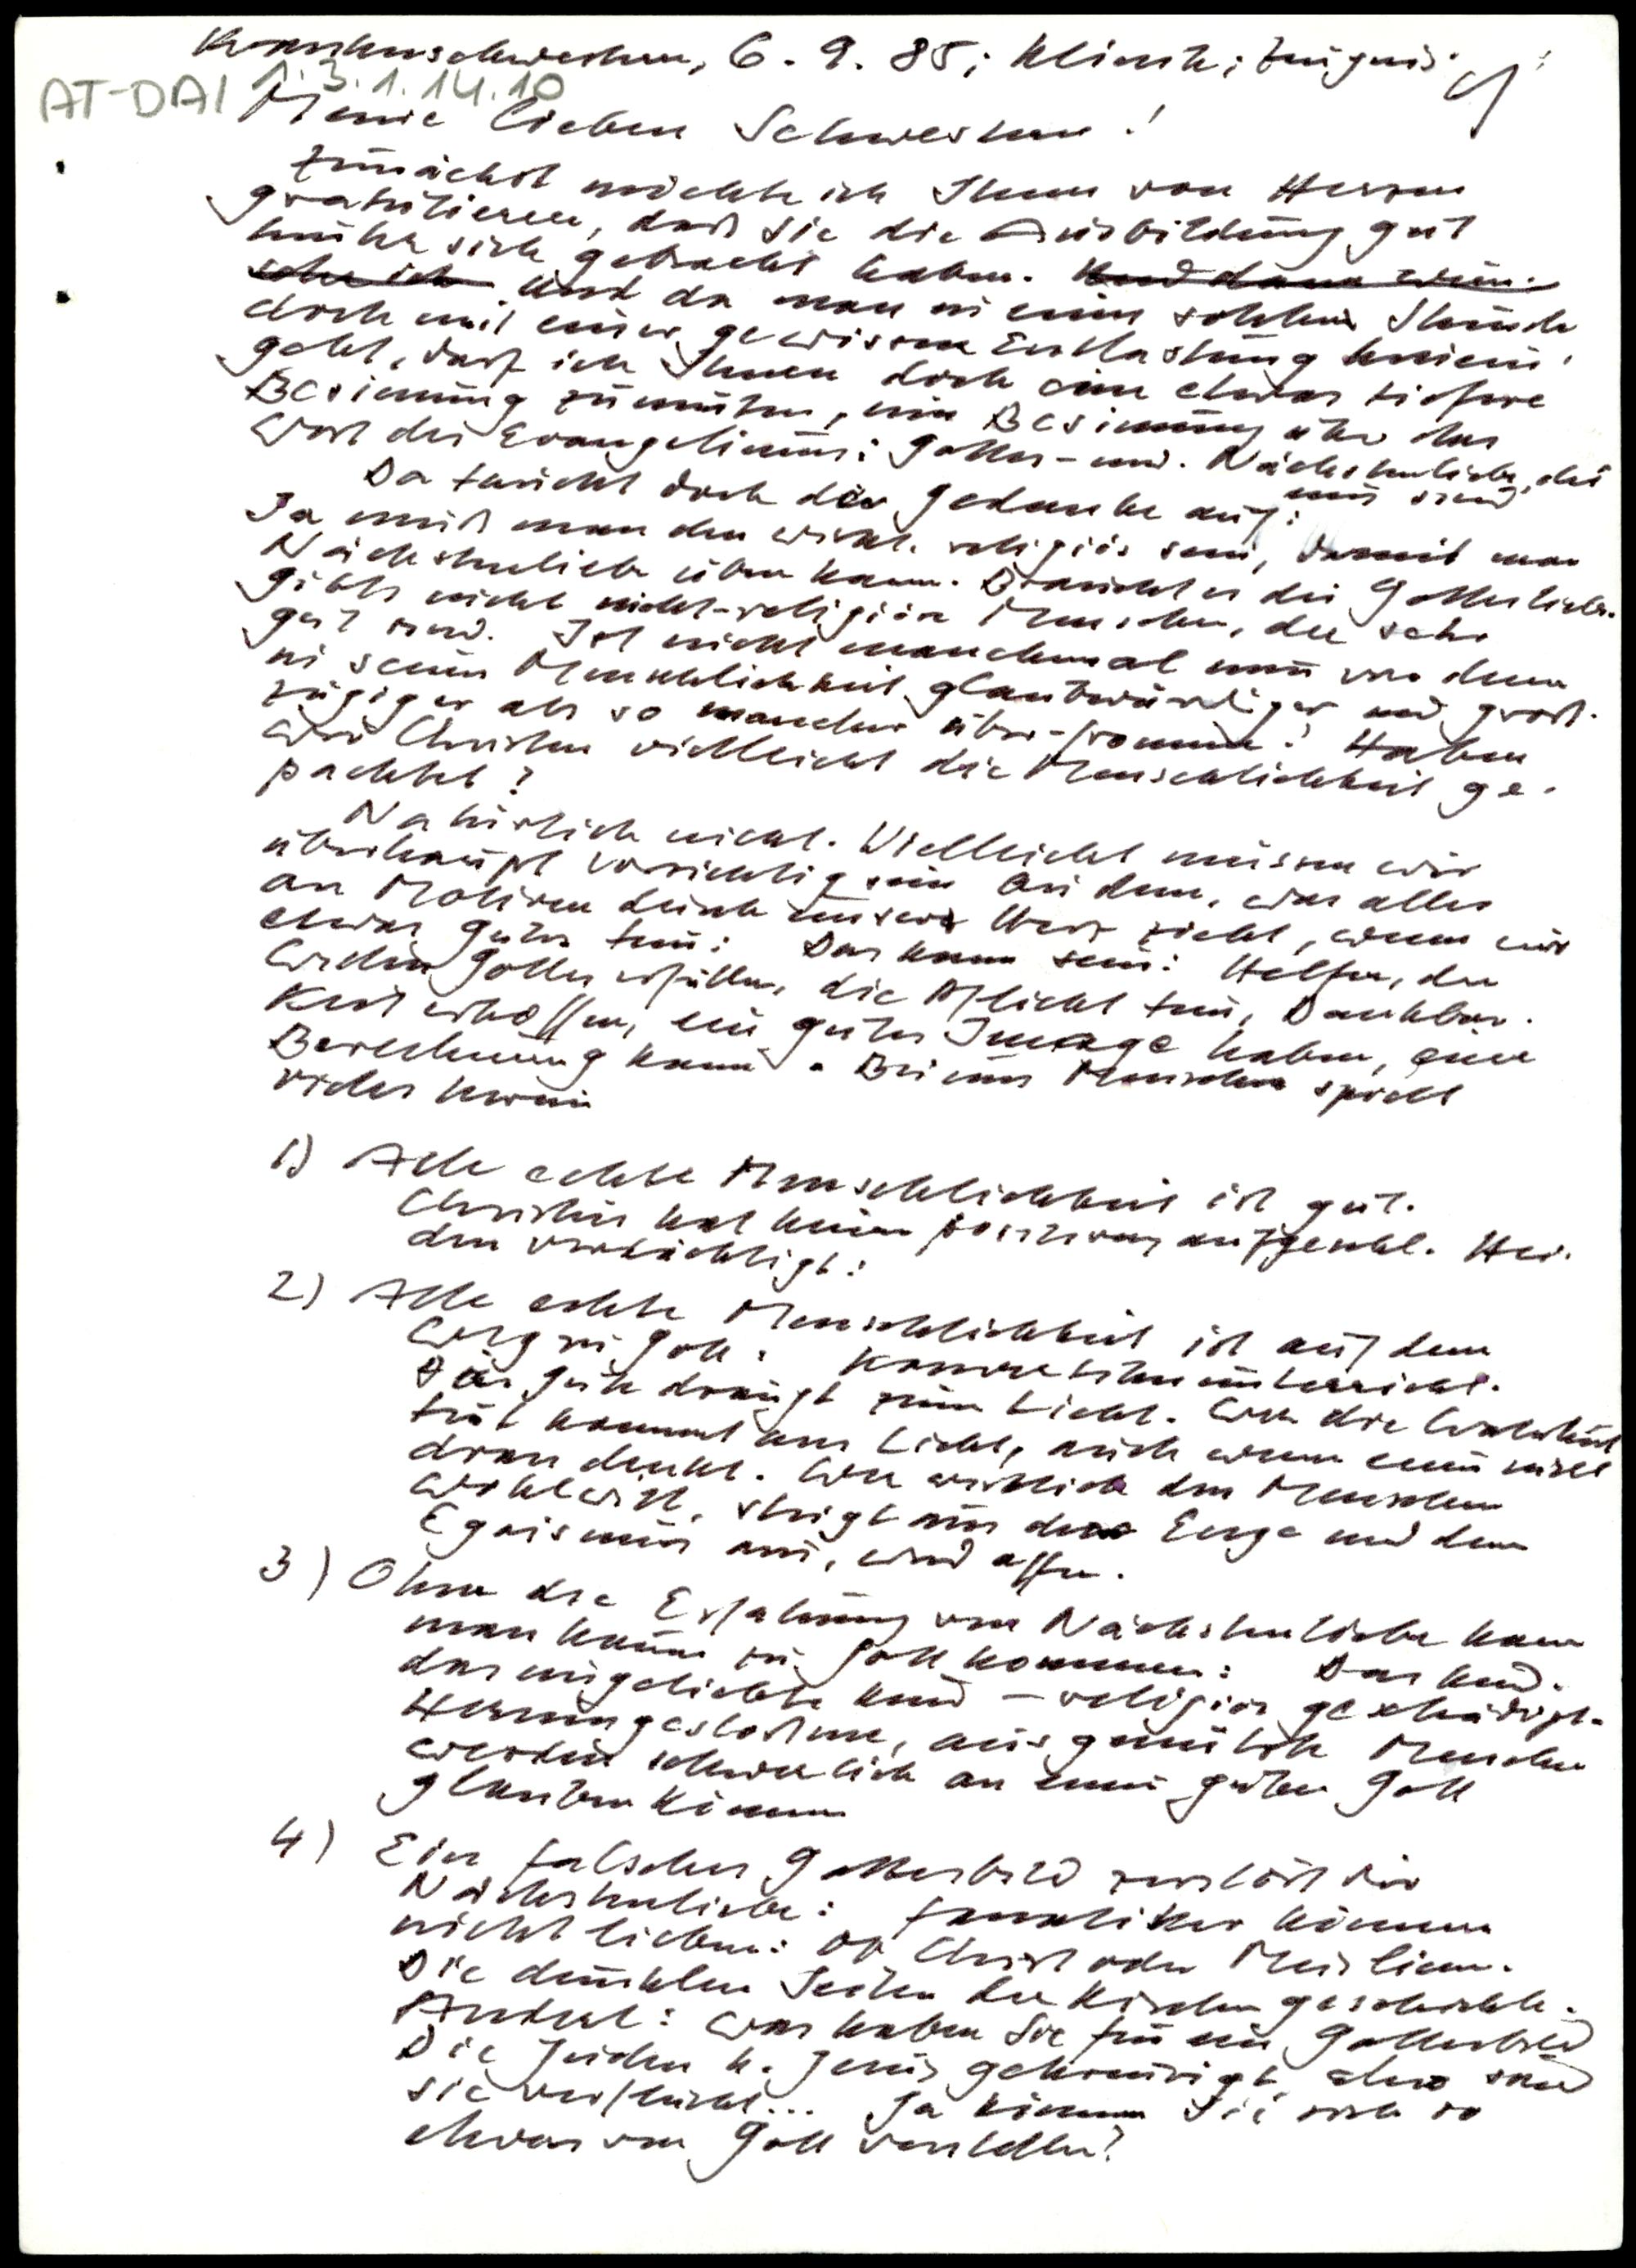 Krankenschwestern, 6. 9. 85; Klinik; Zeugnis.
AT-DAI 1.3.1.14.10
Meine lieben Schwestern!
Zunächst möchte ich Ihnen von Herzen
gratulieren, daß Sie die Ausbildung gut
hinter sich gebracht haben. Und dann wün-
sche ich Und da man in einer solchen Stunde
doch mit einer gewissen Entlastung hinein-
geht, darf ich Ihnen doch eine etwas tiefere
Besinnung zumuten, eine Besinnung über das
Wort des Evangeliums: Gottes- und Nächstenliebe, die
eins sind
Da taucht doch der Gedanke auf:
Ja muß man den wirkl. religiös sein, damit man
Nächstenliebe üben kann. Braucht es die Gottesliebe.
gibts nicht nicht-religiöse Menschen, die sehr
gut sind. Ist nicht manchmal einer von denen
in seiner Menschlichkeit glaubwürdiger und groß-
zügiger als so mancher über-fromme? Haben
wir Christen vielleicht die Menschlichkeit ge-
pachtet?
Natürlich nicht. Vielleicht müssen wir
überhaupt vorsichtig sein bei dem, was alles
an Motiven durch unser Herz zieht, wenn wir
etwas Gutes tun: Das kann sein: Helfen, den
Willen Gottes erfüllen, die Pflicht tun, Dankbar-
keit erhoffen, ein gutes Image haben, eine
Berechnung kann. Bei uns Menschen spielt
vieles herein
1) Alle echte Menschlichkeit ist gut.
Christus hat keinen aufgehal. Hei-
den verdächtigt:
2) Alle echte Menschlichkeit ist auf dem
Weg zu Gott: Konvertitenunterricht.
Das Gute drängt zum Licht. Wer die Wahrheit
tut kommt ans Licht, auch wenn einer nicht
dran denkt. Wer wirklich den Menschen
wohlwill, steigt aus der Enge und dem
Egoismus aus, wird offen.
3) Ohne die Erfahrung von Nächstenliebe kann
man kaum zu Gott kommen: Das Kind.
das ungeliebte Kind – religiös geschädigt.
Herumgestoßene, ausgenützte Menschen
werden schwerlich an einen guten Gott
glauben können
4) Ein falsches Gottesbild zerstört die
Nächstenliebe: Fanatiker können
nicht lieben: ob Christ oder Muslim.
Die dunklen Seiten der Kirchengeschichte.
Anderl: Was haben Sie für ein Gottesbild
Die Juden h. Jesus gekreuzigt, also sind
sie verflucht... Ja können Sie sich so
etwas von Gott vorstellen?